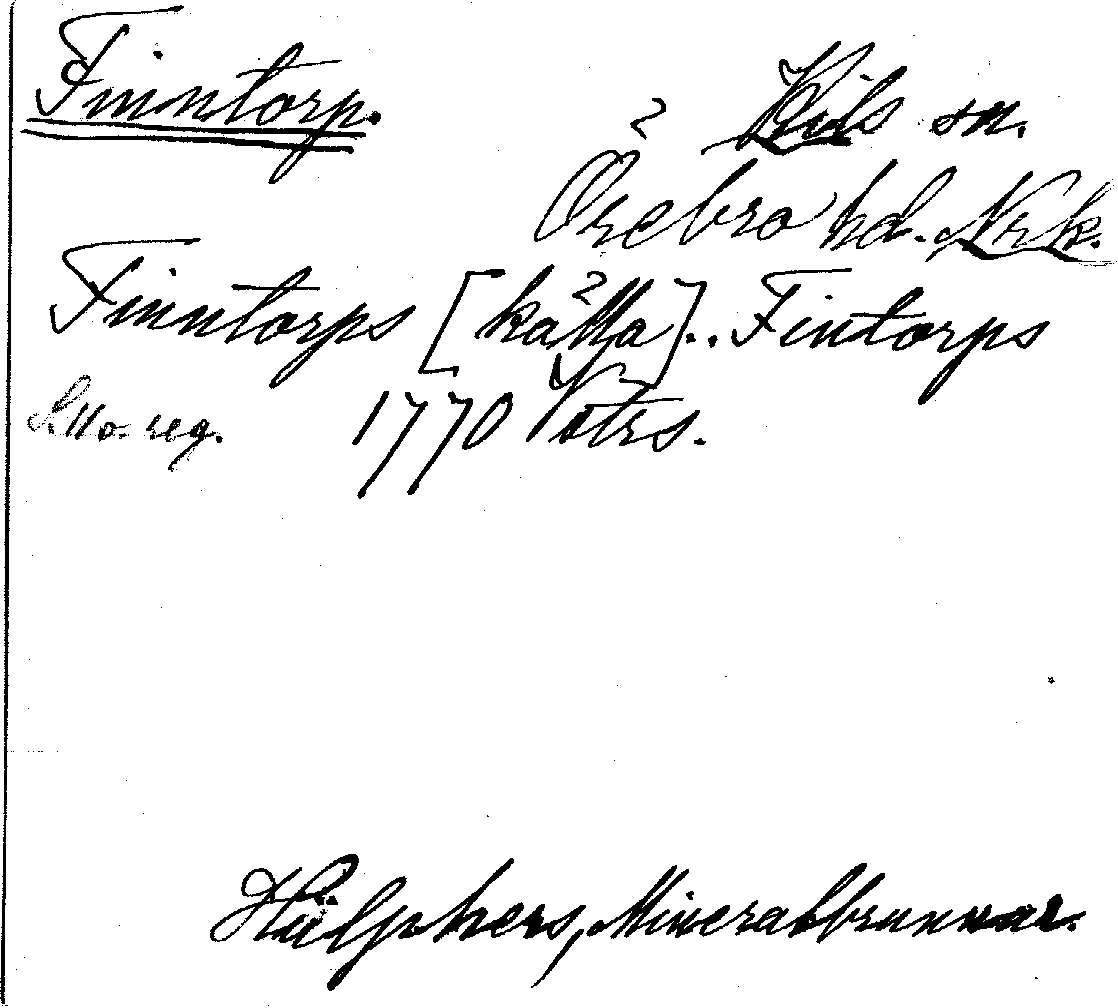 Finntorp.
Kils sn.
Örebro hd. Nrk.
Finntorps [källa]. . Fintorps
1770 Votrs.
reg.
Hülphers, Mineralbrunnar.